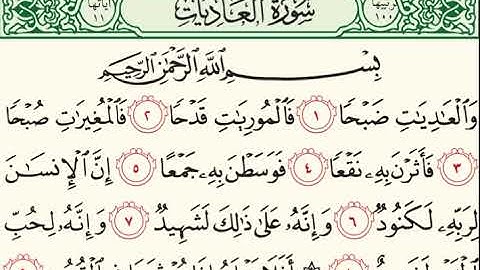 ترتيبها ١٠٠ سُورَةُ الْعَادِيَاتِ آياتها ١١
بِسْمِ اللَّهِ الرَّحْمَٰنِ الرَّحِيمِ
وَالْعَٰدِيَٰتِ ضَبْحًا ١ فَالْمُورِيَٰتِ قَدْحًا ٢ فَالْمُغِيرَٰتِ صُبْحًا
٣ فَأَثَرْنَ بِهِۦ نَقْعًا ٤ فَوَسَطْنَ بِهِۦ جَمْعًا ٥ إِنَّ الْإِنسَٰنَ
لِرَبِّهِۦ لَكَنُودٌ ٦ وَإِنَّهُۥ عَلَىٰ ذَٰلِكَ لَشَهِيدٌ ٧ وَإِنَّهُۥ لِحُبِّ